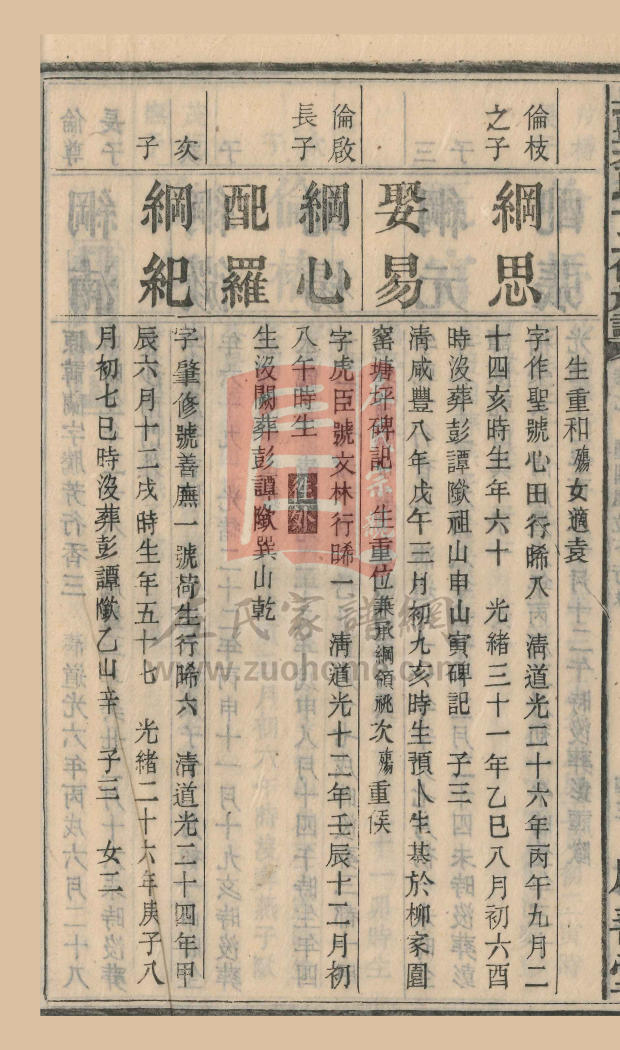 生重和殤女適袁
倫枝之子
綱思
字作聖號心田行睎八 清道光二十六年丙午九月二
十四亥時生年六十 光緒三十一年乙巳八月初六酉
時沒葬彭譚歟祖山申山寅碑記 子三
娶易
清咸豐八年戊午三月初九亥時生預卜生基於柳家園
窰塘坪碑記 生重位兼承綱領祧次殤重侯
倫啟長子
綱心
字虎臣號文林行睎一 清道光十二年壬辰十二月初
八午時生 往外
配羅
生沒闕葬彭譚歟巽山乾
次子
綱紀
字肇修號善廡一號尚生行睎六 清道光二十四年甲
辰六月十三戌時生年五十七 光緒二十六年庚子八
月初七巳時沒葬彭譚歟乙山辛 子三 女二
左氏家譜網
www.zuohome.com